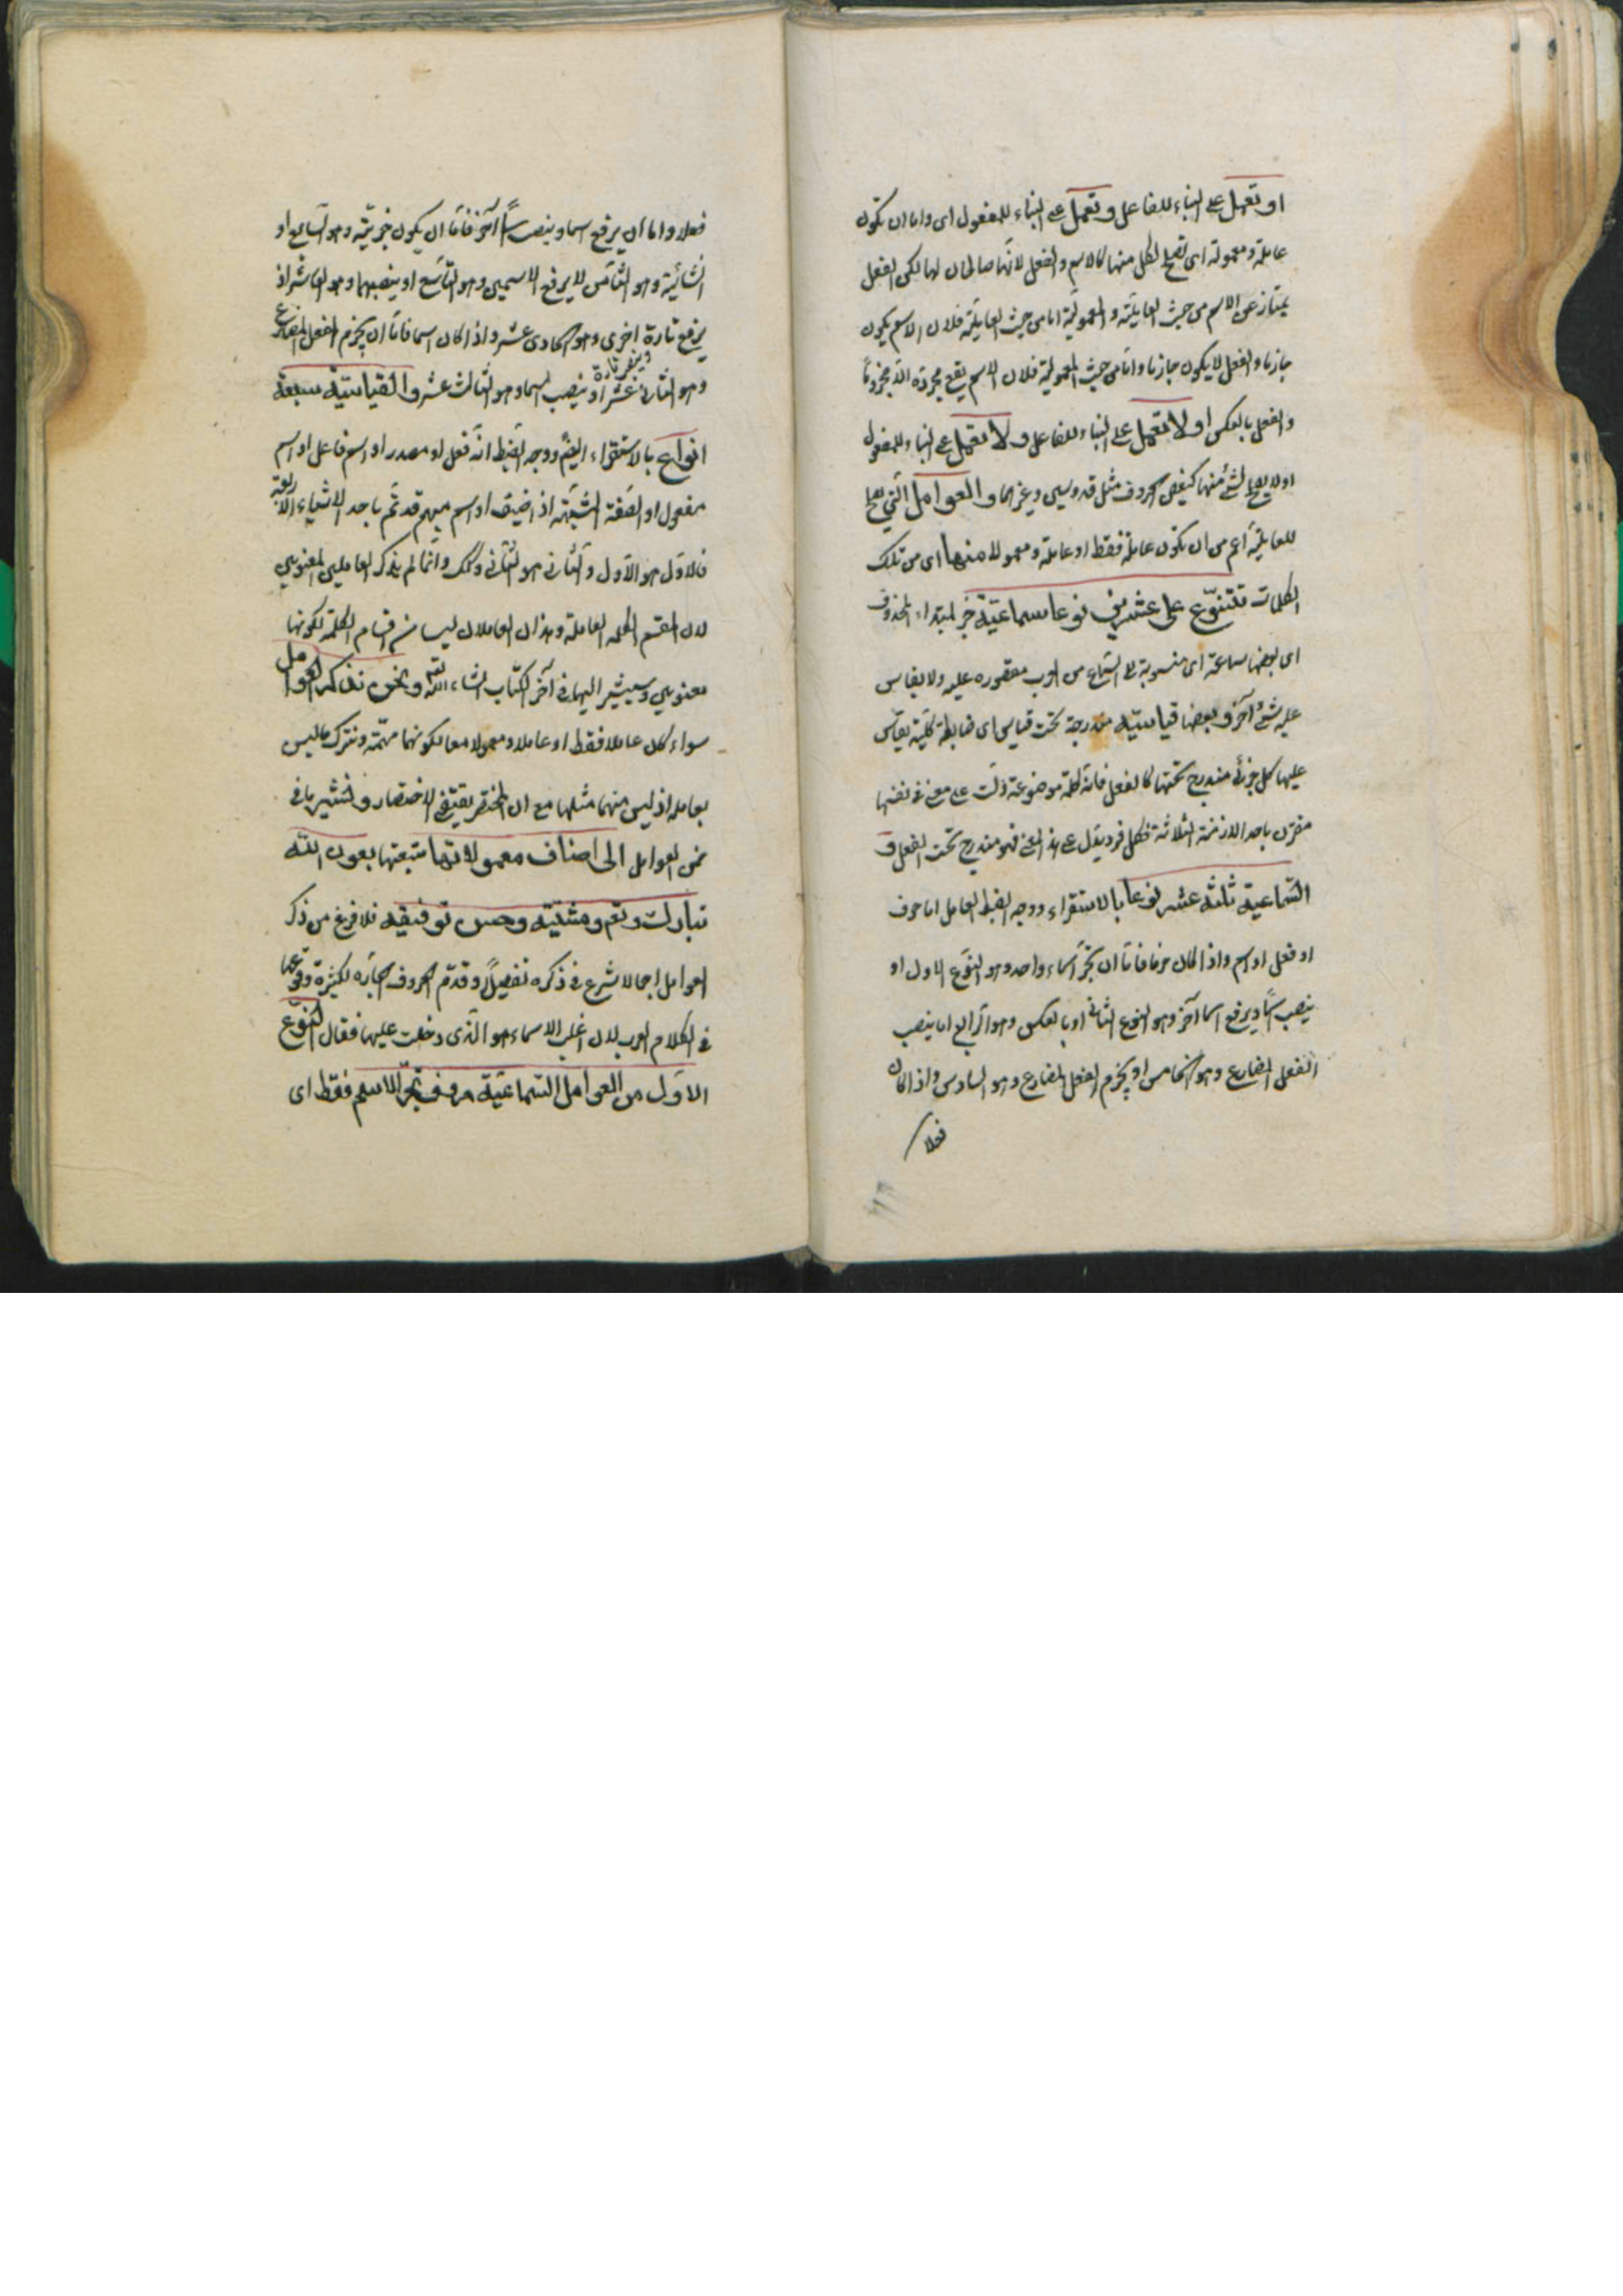 او تعمل على البناء للفاعل وتعمل على البناء للمفعول اى واما ان تكون
عاملة ومعمولة اى تصلح لكل منهما كالاسم والفعل لانهما صالحان لهما لكن الفعل
يمتاز عن الاسم من حيث العاملية والمعمولية اما من حيث العاملية فلان الاسم يكون
جازما والفعل لا يكون جازما واما من حيث المعمولية فلان الاسم يقع مجرورا لا مجزوما
والفعل بالعكس او لا تعمل على البناء للفاعل ولا تعمل على البناء للمفعول
او لا يصلح لشئ منهما كبعض الحروف مثل قد وسين وغيرهما والعوامل التى تصلح
للعاملية اعم من ان تكون عاملة فقط او عاملة ومعمولا منها اى من تلك
الكلمات تتنوع على عشرين نوعا سماعية خبر لمبتداء المحذوف
اى بعضها سماعية اى منسوبة الى السماع من العرب مقصورة عليه ولا يقاس
عليه شئ آخر وبعضها قياسية مندرجة تحت قياس اى ضابطة كلية يقاس
عليها كل جزئى مندرج تحتها كالفعل فانه كلمة موضوعة دلت على معنى فى نفسها
مقترن باحد الازمنة الثلاثة فكل فرد يدل على هذا المعنى فهو مندرج تحت الفعل ف
السماعية ثلثة عشر نوعا بالاستقراء ووجه الضبط العامل اما حرف
او فعل او اسم واذا كان حرفا فاما ان تجر اسما واحد وهو النوع الاول او
ينصب اسما ويرفع اسما آخر وهو النوع الثانى او بالعكس وهو الرابع اما ينصب
الفعل المضارع وهو الخامس او يجزم الفعل المضارع وهو السادس واذا كان
فعلا
فعلا واما ان يرفع اسما وينصب اسما آخر فاما ان يكون خبرية وهو السابع او
انشائية وهو الثامن لا يرفع الاسمين وهو التاسع او ينصبهما وهو العاشر اذ
يرفع تارة اخرى وهو الحادى عشر واذا كان اسما فاما ان يجزم الفعل المضارع
وهو الثانى عشر او ينصب اسما وهو الثالث عشر والقياسية سبعة
انواع بالاستقراء ايضا ووجه الضبط انه فعل او مصدر او اسم فاعل او اسم
مفعول او الصفة المشبهة اذ اضيف او اسم مبهم قد تم باحد الاشياء الاربعة
فالاول هو الاول والثانى هو الثانى وكذلك وانما لم يذكر العاملين المعنويين
لان المقسم الكلمة العاملة وهذان العاملان ليسا من اقسام الكلمة لكونهما
معنويين وسيشير اليهما فى آخر الكتاب انشاء الله تعالى ونحن نذكر العوامل
سواء كان عاملا فقط او عاملا ومعمولا معا لكونهما مهمة ونترك ما ليس
بعامله اذ ليس منهما مثلها مع ان المختصر يقتضى الاختصار ونشير بها فى
ضمن العوامل الى اصناف معمولاتها متبعتها بعون الله
تبارك وتعالى ومشيته وحسن توفيقه فلما فرغ من ذكر
العوامل اجمالا شرع فى ذكره تفصيلا وقدم الحروف الجارة لكثرة وقوعها
فى الكلام العرب لان اغلب الاسماء هو الذى دخلت عليها فقال النوع
الاول من العوامل السماعية حروف تجر الاسم فقط اى